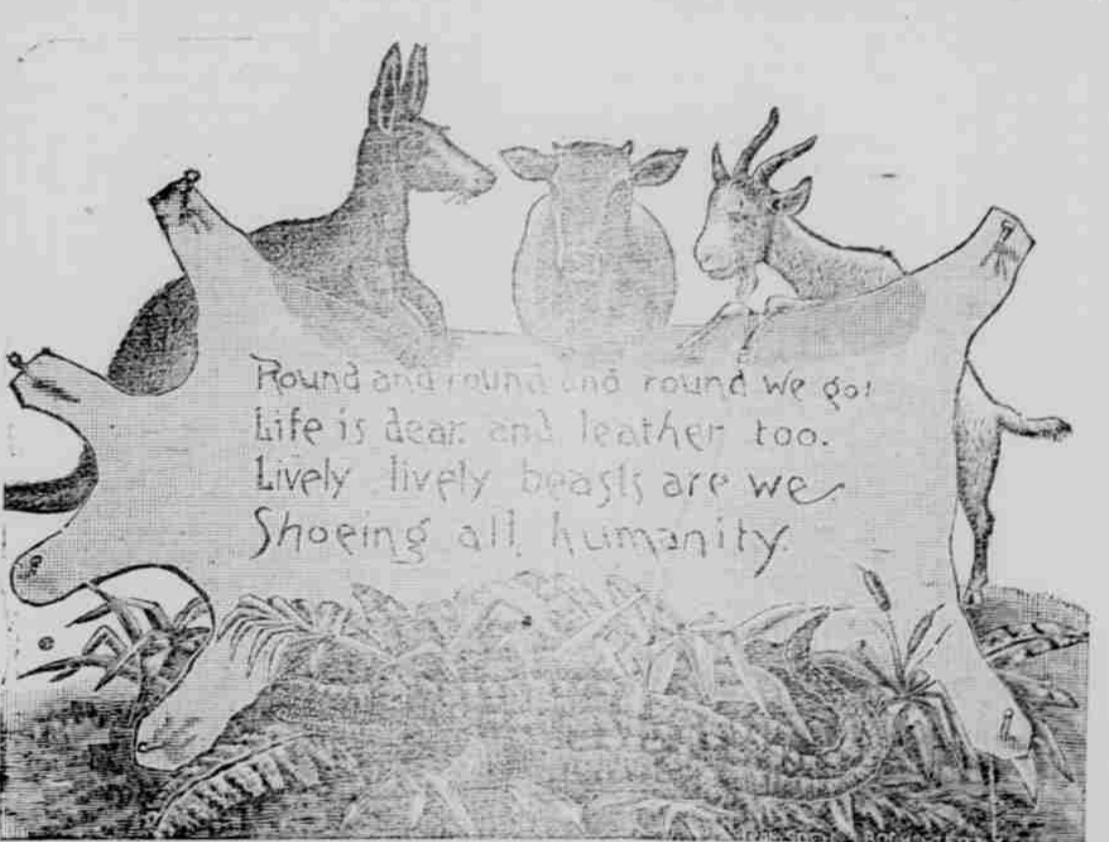 Round and round and round we go!
Life is dear and leather too.
Lively lively beasts are we
Shoeing all humanity.